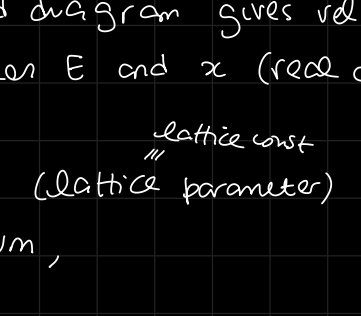 diagram gives rel
E and x (real
lattice const
(lattice parameter)
um,